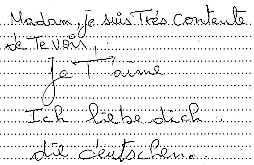 Madam, je suis Trés Contente
de Te voir,
je T'aime
Ich liebe dich
die deutschen.